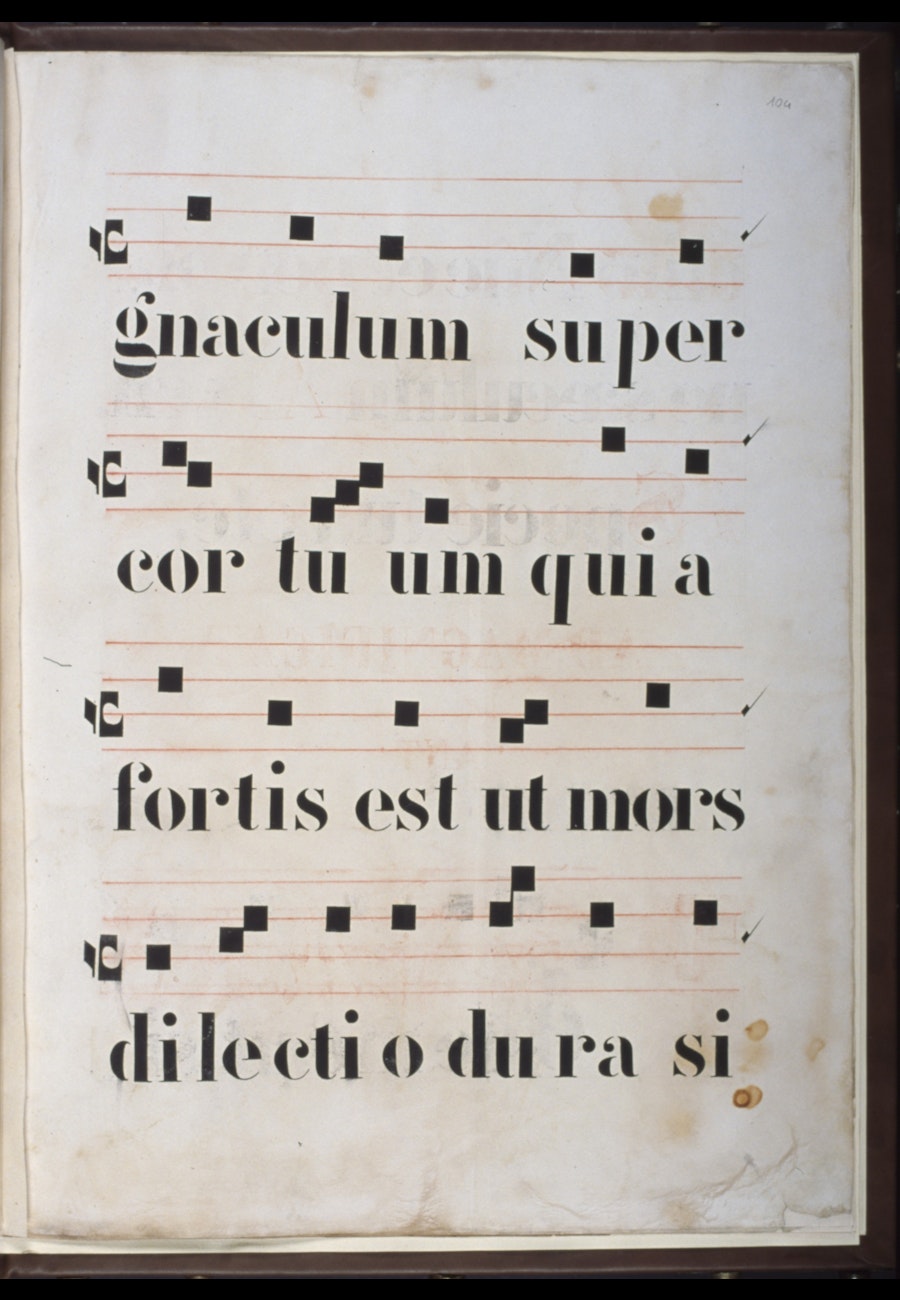 104
gnaculum super
cor tu um qui a
fortis est ut mors
di le cti o du ra si